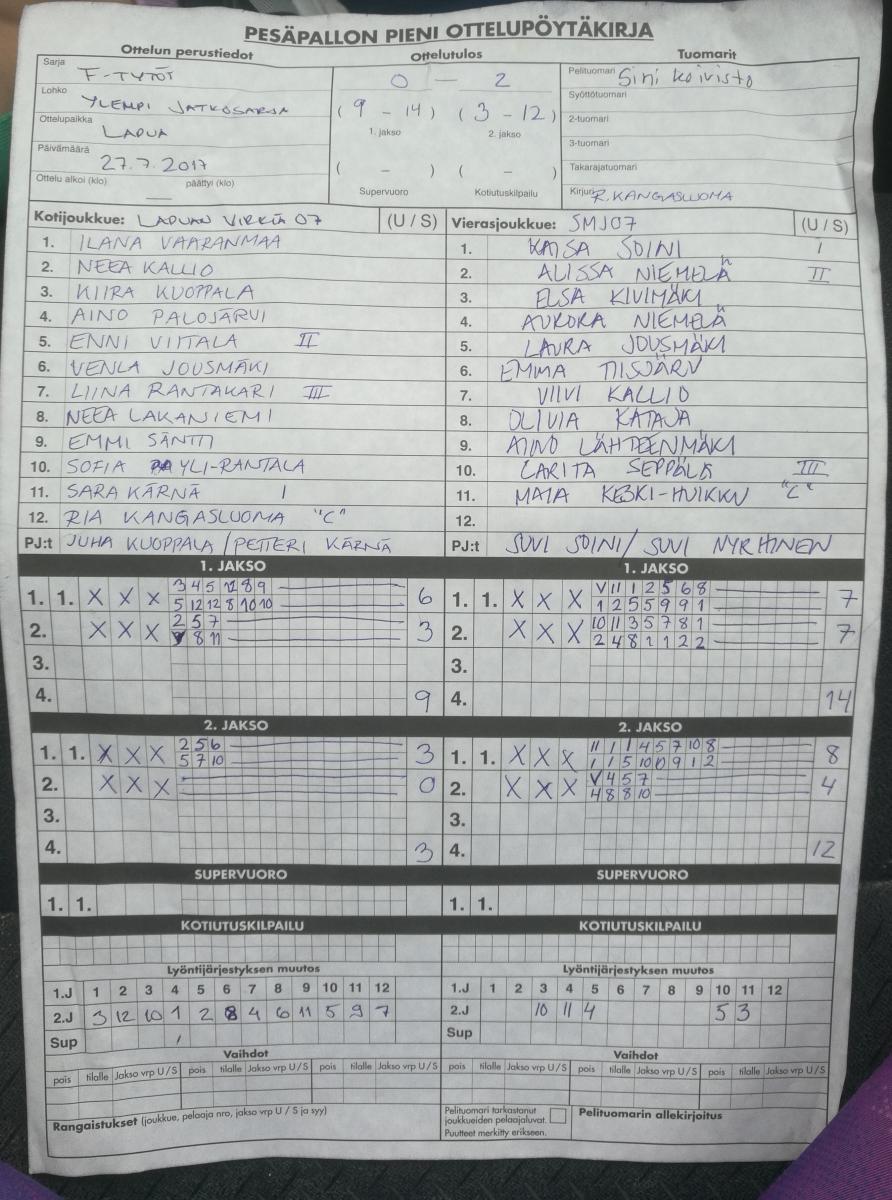 PESÄPALLON PIENI OTTELUPÖYTÄKIRJA
Ottelun perustiedot
Sarja F-TYTÖT
Lohko YLEMPI JATKOSARJA
Ottelupaikka LAPUA
Päivämäärä 27.7.2017
Ottelu alkoi (klo) — päättyi (klo)
Ottelutulos
0 — 2
( 9 - 14 ) ( 3 - 12 )
1. jakso 2. jakso
( - ) ( - )
Supervuoro Kotiutuskilpailu
Tuomarit
Pelituomari Sini Koivisto
Syöttötuomari
2-tuomari
3-tuomari
Takarajatuomari
Kirjuri R.KANGASLUOMA
Kotijoukkue: LAPUAN VIRKIÄ 07 (U / S)
1. ILANA VAARANMAA
2. NEEA KALLIO
3. KIIRA KUOPPALA
4. AINO PALOJÄRVI
5. ENNI VIITALA II
6. VENLA JOUSMÄKI
7. LIINA RANTAKARI III
8. NEEA LAKANIEMI
9. EMMI SÄNTTI
10. SOFIA YLI-RANTALA
11. SARA KÄRNÄ I
12. RIA KANGASLUOMA "C"
PJ:t JUHA KUOPPALA / PETTERI KÄRNÄ
Vierasjoukkue: SMJ07 (U / S)
1. KAISA SOINI I
2. ALISSA NIEMELÄ II
3. ELSA KIVIMÄKI
4. AURORA NIEMELÄ
5. LAURA JOUSMÄKI
6. EMMA
7. VIIVI KALLIO
8. OLIVIA KATAJA
9. AINO LÄHTEENMÄKI
10. CARITA SEPPÄLÄ III
11. MAIA KESKI-HUIKKU "C"
12.
PJ:t SUVI SOINI / SUVI NYRHINEN
1. JAKSO
1. 1. X X X 3 4 5 12 8 9 6
5 12 12 8 10 10
2. X X X 2 5 7 3
8 11
3.
4. 9
1. JAKSO
1. 1. X X X V 11 1 2 5 6 8 7
1 2 5 5 9 9 1
2. X X X 10 11 3 5 7 8 1 7
2 4 8 1 1 2 2
3.
4. 14
2. JAKSO
1. 1. X X X 2 5 6 3
5 7 10
2. X X X 0
3.
4. 3
2. JAKSO
1. 1. X X X 11 1 1 4 5 7 10 8 8
1 1 5 10 10 9 1 2
2. X X X V 4 5 7 4
4 8 8 10
3.
4. 12
SUPERVUORO
1. 1.
SUPERVUORO
1. 1.
KOTIUTUSKILPAILU
KOTIUTUSKILPAILU
Lyöntijärjestyksen muutos
1.J 1 2 3 4 5 6 7 8 9 10 11 12
2.J 3 12 10 1 2 8 4 6 11 5 9 7
Sup
Lyöntijärjestyksen muutos
1.J 1 2 3 4 5 6 7 8 9 10 11 12
2.J 10 11 4 5 3
Sup
Vaihdot
pois tilalle Jakso vrp U / S pois tilalle Jakso vrp U / S pois tilalle Jakso vrp U / S
Vaihdot
pois tilalle Jakso vrp U / S pois tilalle Jakso vrp U / S pois tilalle Jakso vrp U / S
Rangaistukset (joukkue, pelaaja nro, jakso vrp U / S ja syy)
Pelituomari tarkastanut
joukkueiden pelaajaluvat.
Puutteet merkitty erikseen.
Pelituomarin allekirjoitus